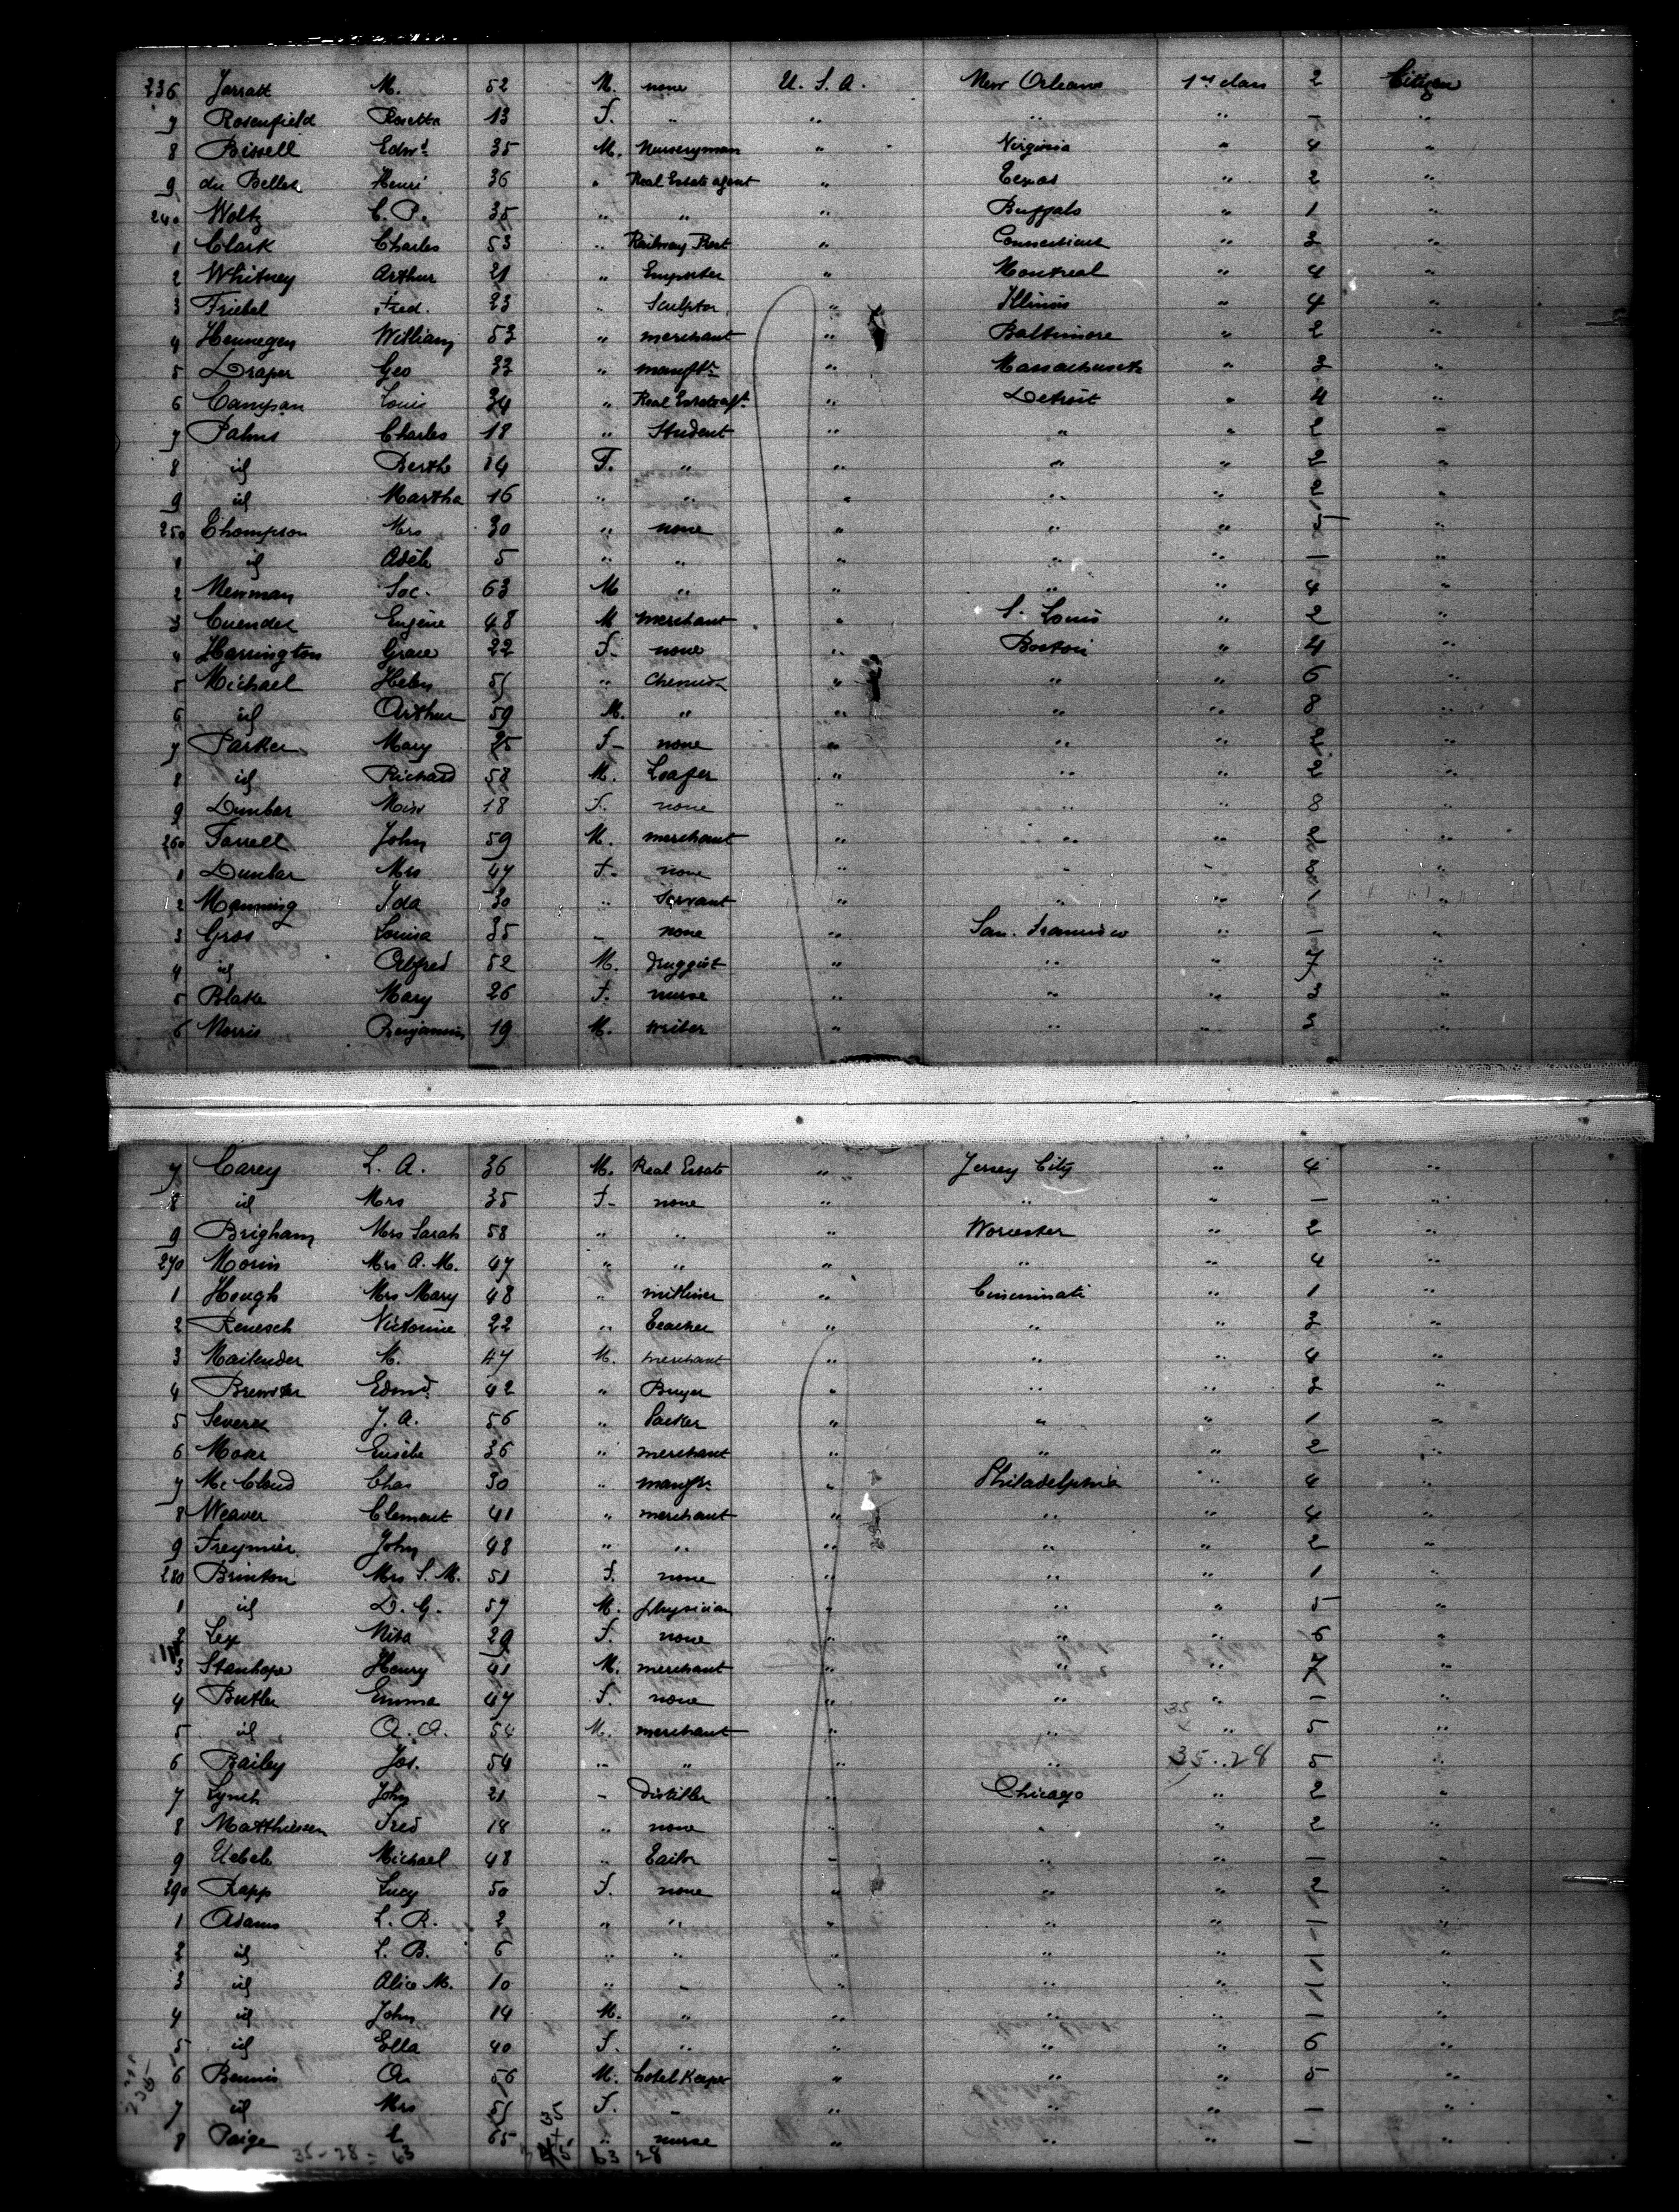 236 Jarratt M. 52 M. none U. S. A. New Orleans 1st class 2 Citizen
7 Rosenfield Rosetta 13 F. " " " " 1 "
8 Bissell Edwd 35 M. Nurseryman " Virginia " 4 "
9 du Bellet Henri 36 " Real Estate agent " Texas " 2 "
240 Woltz C. P. 35 " " " Buffalo " 1 "
1 Clark Charles 53 " Railway Prest " Connecticut " 3 "
2 Whitney Arthur 21 " Importer " Montreal " 4 "
3 Friebel Fred. 23 " Sculptor " Illinois " 4 "
4 Hennegen William 53 " merchant " Baltimore " 2 "
5 Draper Geo 33 " manftr " Massachusetts " 3 "
6 Campau Louis 34 " Real Estate agt " Detroit " 4 "
7 Palms Charles 18 " Student " " " 2 "
8 id Berthe 14 F. " " " " 2 "
9 id Martha 16 " " " " " 2 "
250 Thompson Mrs 30 " none " " " "
1 id Adele 5 " " " " " 1 "
2 Newman Soc. 63 M " " " " 4 "
3 Cuendet Eugene 48 M merchant " S. Louis " 2 "
4 Harrington Grace 22 F. none " Boston " 4 "
5 Michael Helen 51 " Chemist " " " 6 "
6 id Arthur 59 M. " " " " 8 "
7 Parker Mary 25 F. none " " " "
8 id Richard 58 M. Loafer " " " 2 "
9 Dunbar Miss 18 F. none " " " 8 "
260 Farrell John 59 M. merchant " " " "
1 Dunbar Mrs 47 F. none " " " 8 "
2 Manning Ida 30 " Servant " " " 1 "
3 Gros Louisa 35 " none " San. Francisco " 1 "
4 id Alfred 52 M. druggist " " " 7 "
5 Blake Mary 26 F. nurse " " " 3 "
6 Norris Benjamin 19 M. writer " " " 3 "
7 Carey L. A. 36 M. Real Estate " Jersey City " 4 "
8 id Mrs 35 F. none " " " 1 "
9 Brigham Mrs Sarah 58 " " " Worcester " 2 "
270 Morin Mrs A. M. 47 " " " " " 4 "
1 Hough Mrs Mary 48 " milliner " Cincinnati " 1 "
2 Renesch Victorine 22 " Teacher " " " 3 "
3 Mailender M. 47 M. merchant " " " 4 "
4 Brewster Edmd 42 " Buyer " " " 3 "
5 Severes J. A. 56 " Packer " " " 1 "
6 Moar Eusebe 36 " merchant " " " 2 "
7 Mc Cloud Chas 30 " manftr " Philadelphia " 4 "
8 Weaver Clement 41 " merchant " " " 4 "
9 Freymier John 48 " " " " " 2 "
280 Brinton Mrs S. M. 51 F. none " " " 1 "
1 id D. G. 57 M. physician " " " 5 "
2 Lex Nita 29 F. none " " " 6 "
3 Stanhope Henry 41 M. merchant " " " 7 "
4 Butler Emma 47 F. none " " " 1 "
35
5 id A. A. 54 M. merchant " " " 5 "
6 Bailey Jos. 54 " " " " 35..28 5 "
7 Lynch John 21 " Distiller " Chicago " 2 "
8 Matthiessen Fred 18 " none " " " 2 "
9 Uebele Michael 48 " Tailor " " " 1 "
290 Rapp Lucy 50 F. none " " " 2 "
1 Adams L. R. 2 " " " " " 1 "
2 id L. B. 6 " " " " " 1 "
3 id Alice M. 10 " " " " " 1 "
4 id John 14 M. " " " " 1 "
5 id Ella 40 F. " " " " 6 "
6 Bemis A. 56 M. hotel Keeper " " " 5 "
7 id Mrs 51 F. " " " " 1 "
35
8 Paige L 65 " nurse " " " 1 "
35-28 = 63 63 28